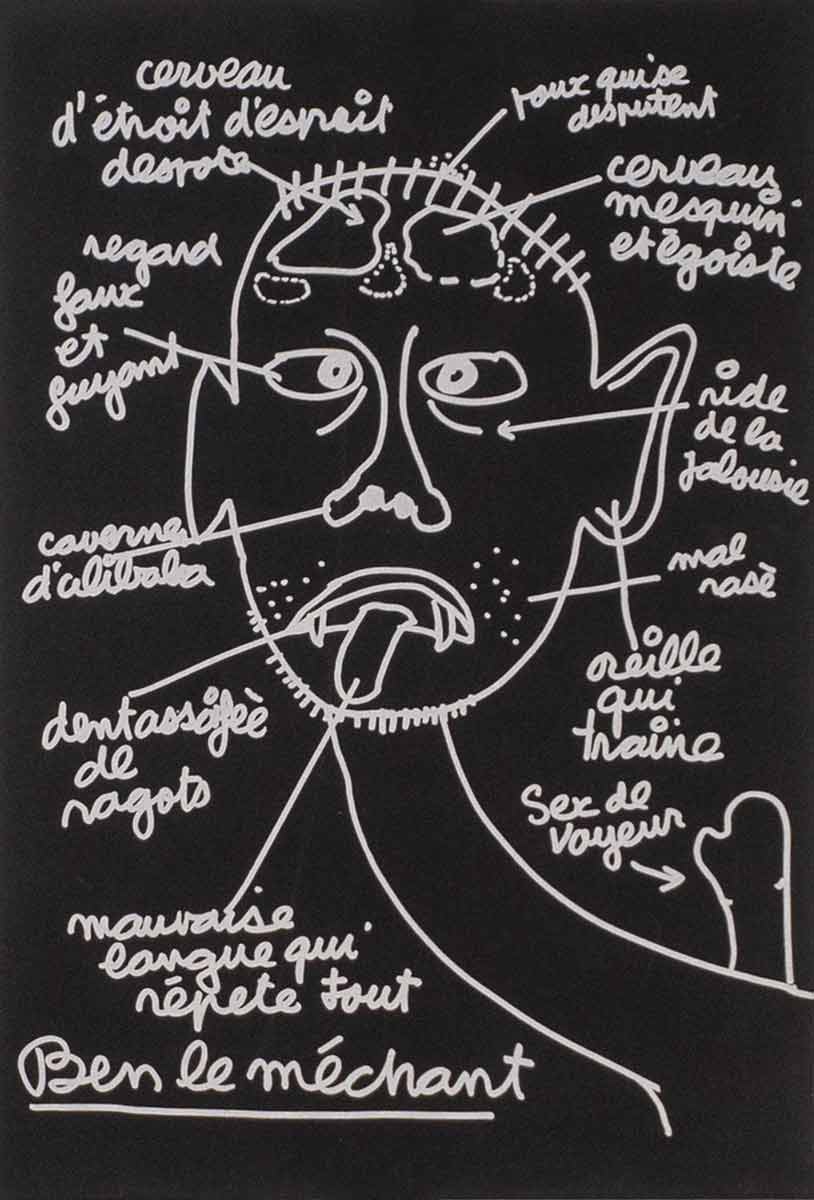 cerveau
d'étroit d'esprit
despote
poux qui se
disputent
cerveau
mesquin
et égoiste
regard
faux
et
fuyant
ride
de la
jalousie
caverne
d'alibaba
mal
rasè
oreille
qui
traine
dent assoifeè
de
ragots
Sex de
voyeur
mauvaise
langue qui
rèpete tout
Ben le méchant